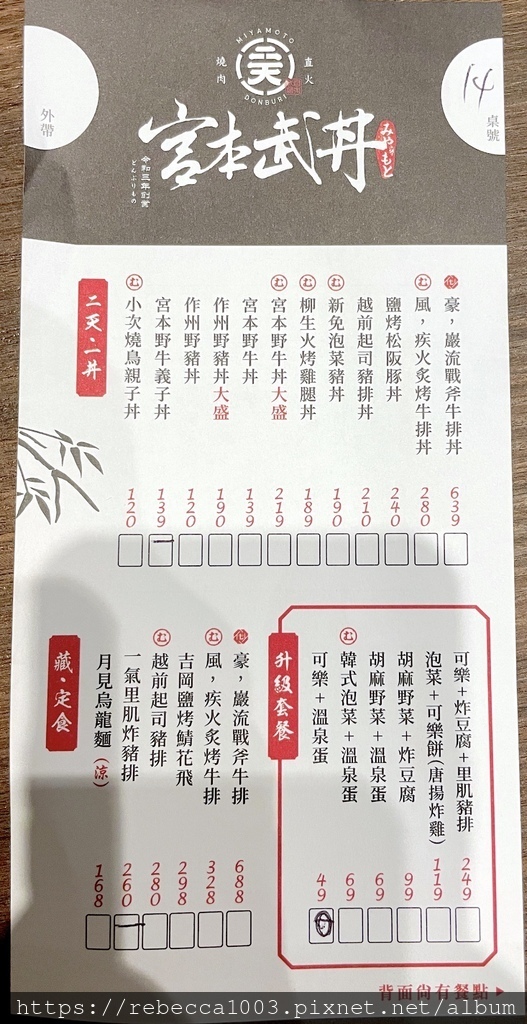 MIYAMOTO
二天
DONBURI
燒肉
直火
外帶
14
桌號
宮本武丼
みやもと
令和三年創業
どんぶりもの
豪，巖流戰斧牛排丼 639
む 風，疾火炙烤牛排丼 280
鹽烤松阪豚丼 240
越前起司豬排丼 210
む 新免泡菜豬丼 190
む 柳生火烤雞腿丼 189
む 宮本野牛丼大盛 219
宮本野牛丼 139
作州野豬丼大盛 190
作州野豬丼 120
宮本野牛義子丼 139 一
む 小次燒鳥親子丼 120
二天、一丼
可樂＋炸豆腐＋里肌豬排 249
泡菜＋可樂餅(唐揚炸雞) 119
胡麻野菜＋炸豆腐 99
胡麻野菜＋溫泉蛋 69
む 韓式泡菜＋溫泉蛋 69
可樂＋溫泉蛋 49
升級套餐
豪，巖流戰斧牛排 688
む 風，疾火炙烤牛排 328
吉岡鹽烤鯖花飛 298
む 越前起司豬排 280
一氣里肌炸豬排 260 一
月見烏龍麵(涼) 168
藏、定食
背面尚有餐點▶
https://rebecca1003.pixnet.net/album